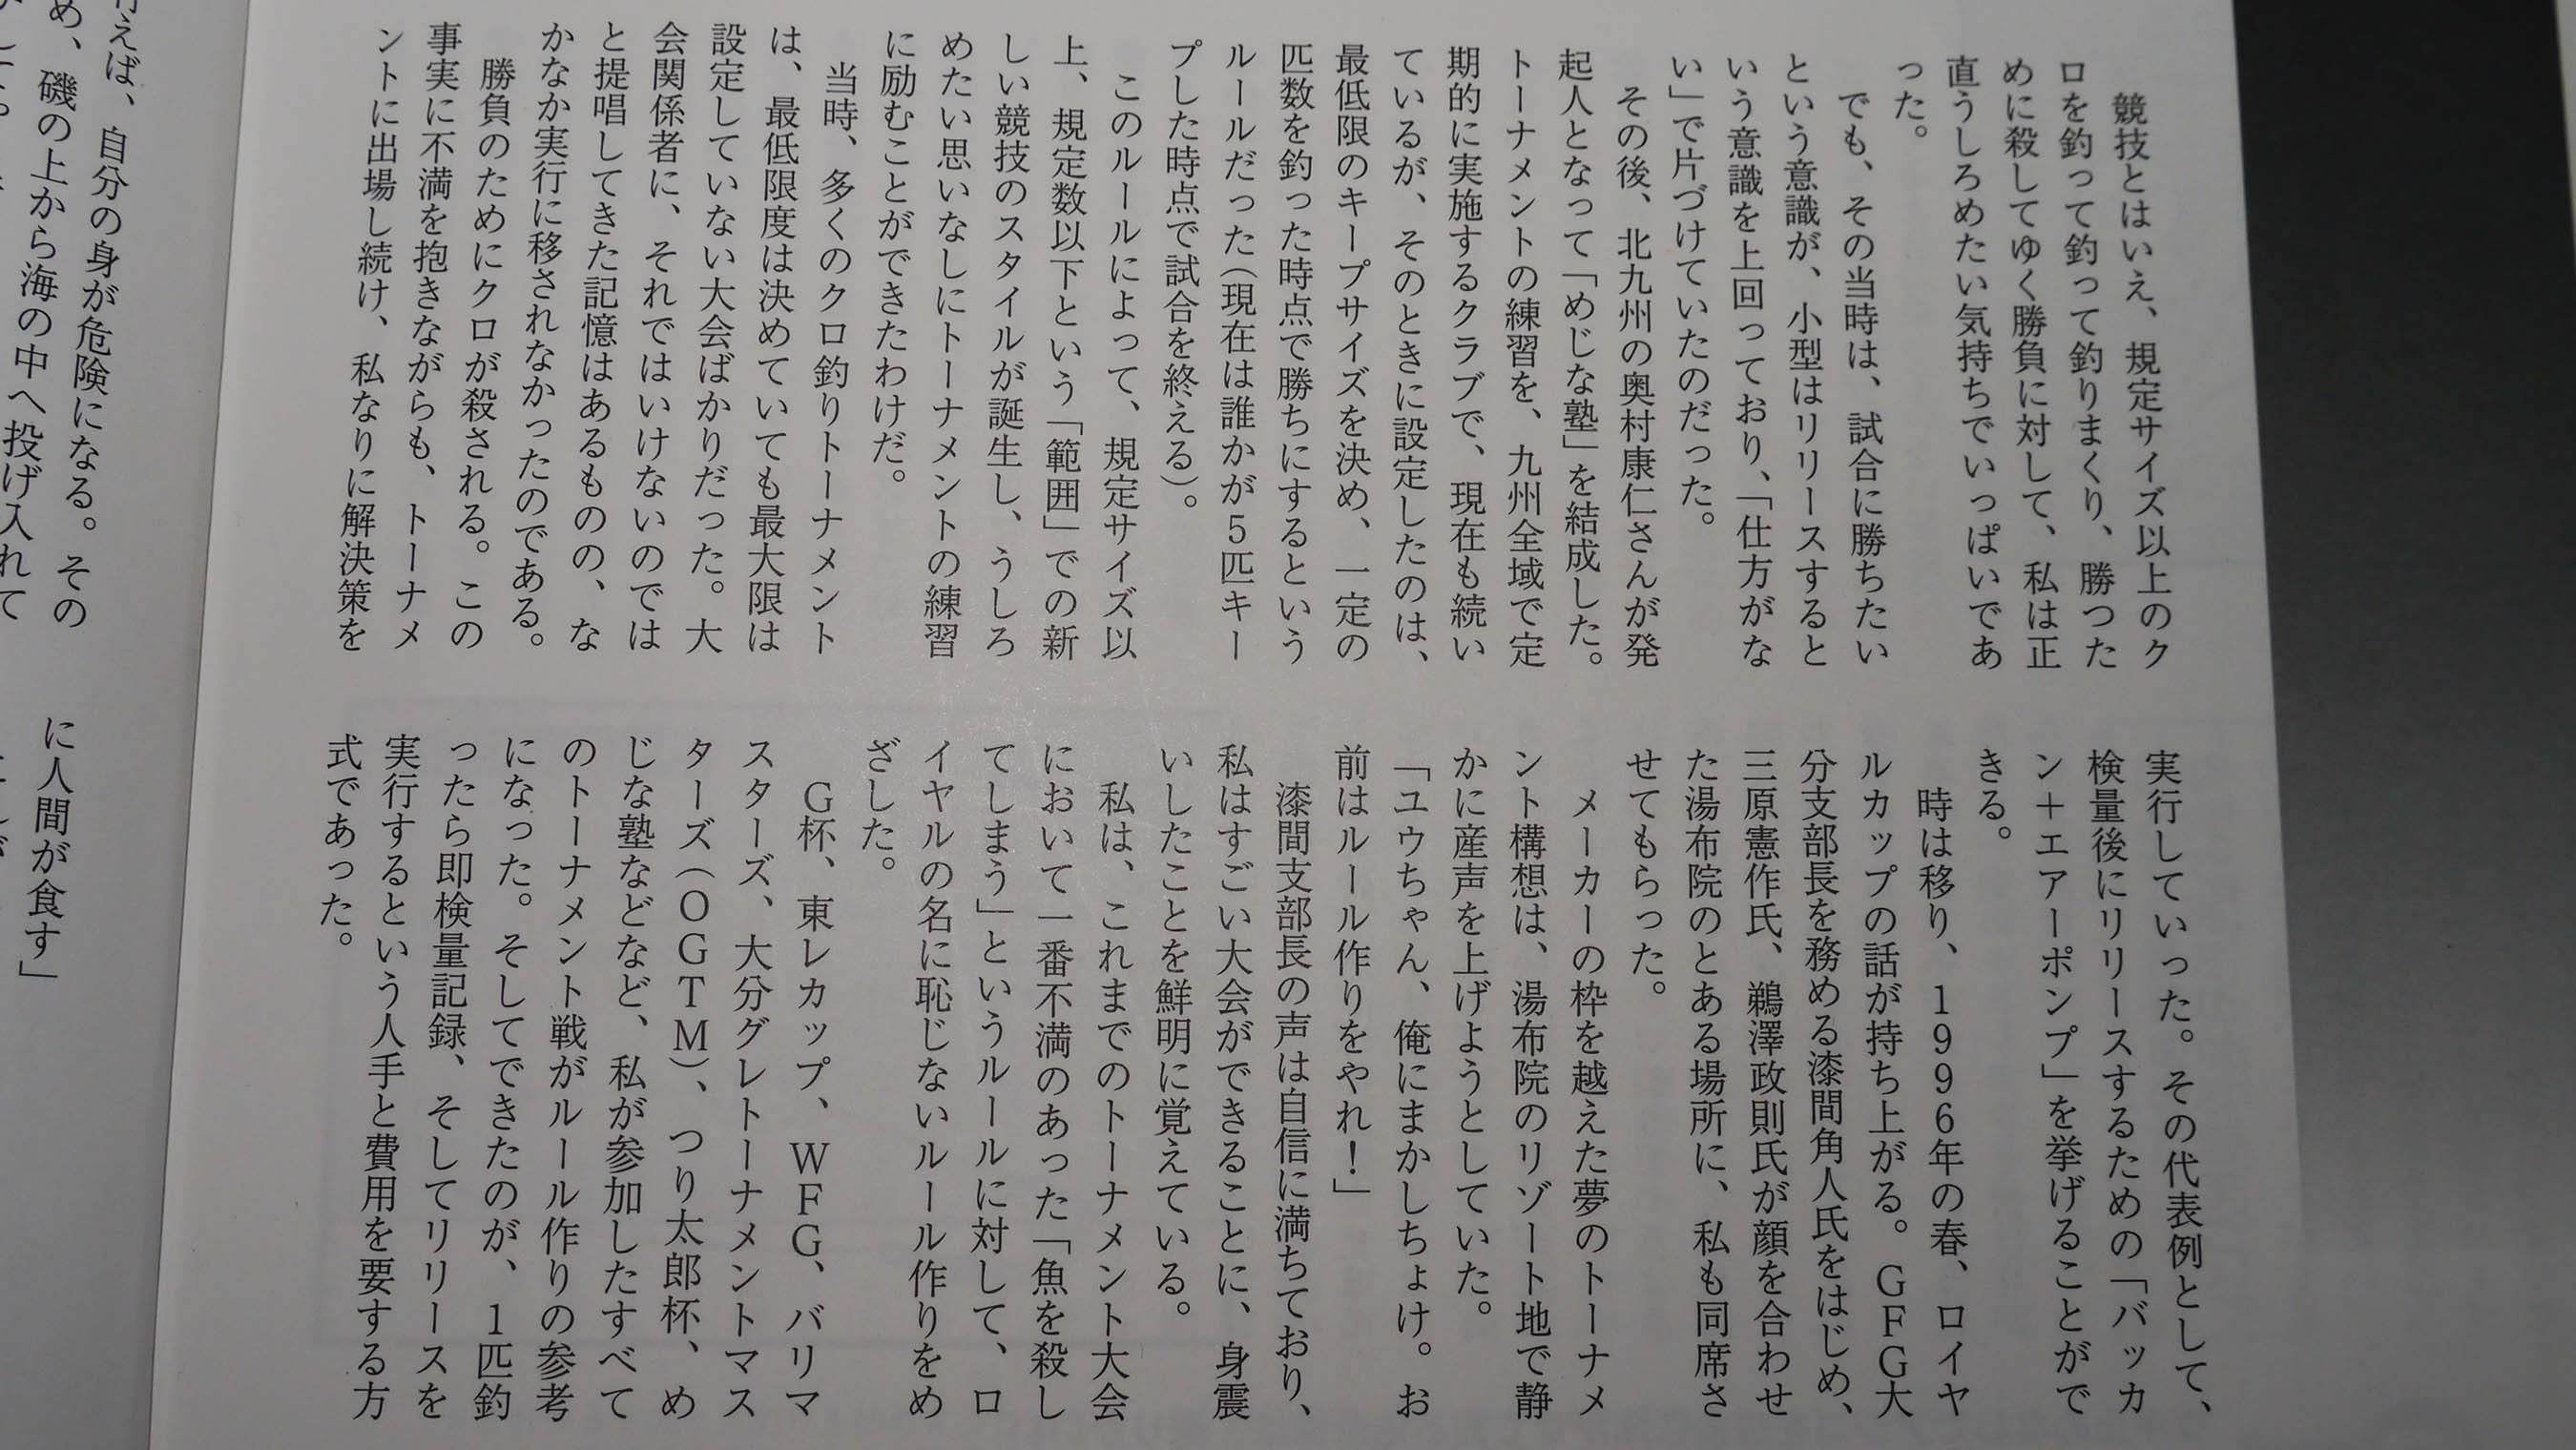 競技とはいえ、規定サイズ以上のク
ロを釣って釣って釣りまくり、勝つた
めに殺してゆく勝負に対して、私は正
直うしろめたい気持ちでいっぱいであ
った。
でも、その当時は、試合に勝ちたい
という意識が、小型はリリースすると
いう意識を上回っており、「仕方がな
い」で片づけていたのだった。
その後、北九州の奥村康仁さんが発
起人となって「めじな塾」を結成した。
トーナメントの練習を、九州全域で定
期的に実施するクラブで、現在も続い
ているが、そのときに設定したのは、
最低限のキープサイズを決め、一定の
匹数を釣った時点で勝ちにするという
ルールだった（現在は誰かが5匹キー
プした時点で試合を終える）。
このルールによって、規定サイズ以
上、規定数以下という「範囲」での新
しい競技のスタイルが誕生し、うしろ
めたい思いなしにトーナメントの練習
に励むことができたわけだ。
当時、多くのクロ釣りトーナメント
は、最低限度は決めていても最大限は
設定していない大会ばかりだった。大
会関係者に、それではいけないのでは
と提唱してきた記憶はあるものの、な
かなか実行に移されなかったのである。
勝負のためにクロが殺される。この
事実に不満を抱きながらも、トーナメ
ントに出場し続け、私なりに解決策を
実行していった。その代表例として、
検量後にリリースするための「バッカ
ン＋エアーポンプ」を挙げることがで
きる。
時は移り、1996年の春、ロイヤ
ルカップの話が持ち上がる。GFG大
分支部長を務める漆間角人氏をはじめ、
三原憲作氏、鵜澤政則氏が顔を合わせ
た湯布院のとある場所に、私も同席さ
せてもらった。
メーカーの枠を越えた夢のトーナメ
ント構想は、湯布院のリゾート地で静
かに産声を上げようとしていた。
「ユウちゃん、俺にまかしちょけ。お
前はルール作りをやれ！」
漆間支部長の声は自信に満ちており、
私はすごい大会ができることに、身震
いしたことを鮮明に覚えている。
私は、これまでのトーナメント大会
において一番不満のあった「魚を殺し
てしまう」というルールに対して、ロ
イヤルの名に恥じないルール作りをめ
ざした。
G杯、東レカップ、WFG、バリマ
スターズ、大分グレトーナメントマス
ターズ（OGTM）、つり太郎杯、め
じな塾などなど、私が参加したすべて
のトーナメント戦がルール作りの参考
になった。そしてできたのが、1匹釣
ったら即検量記録、そしてリリースを
実行するという人手と費用を要する方
式であった。
えば、自分の身が危険になる。その
め、磯の上から海の中へ投げ入れて
に人間が食す」